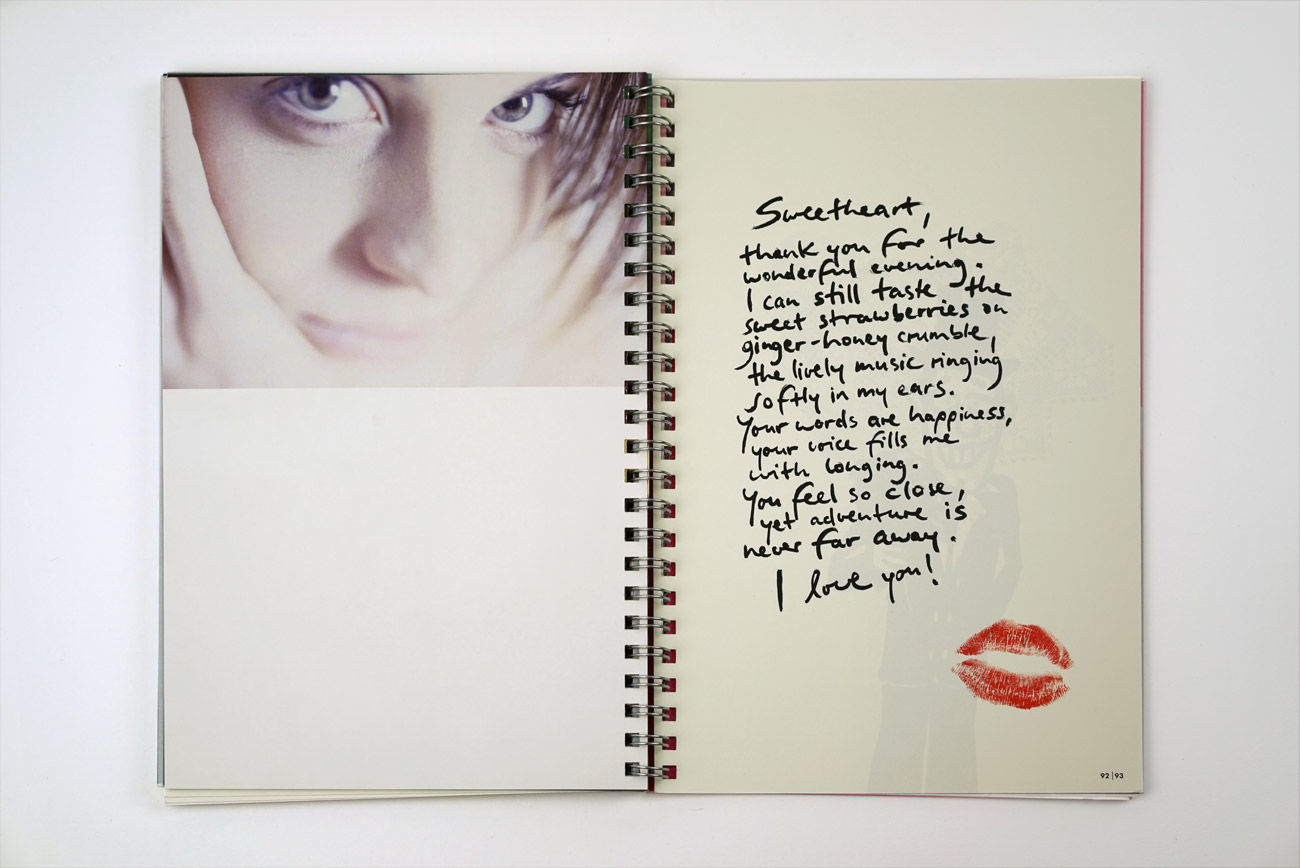 Sweetheart,
thank you for the
wonderful evening.
I can still taste the
sweet strawberries on
ginger-honey crumble,
the lively music ringing
softly in my ears.
Your words are happiness,
your voice fills me
with longing.
You feel so close,
yet adventure is
never far away.
I love you!
92|93